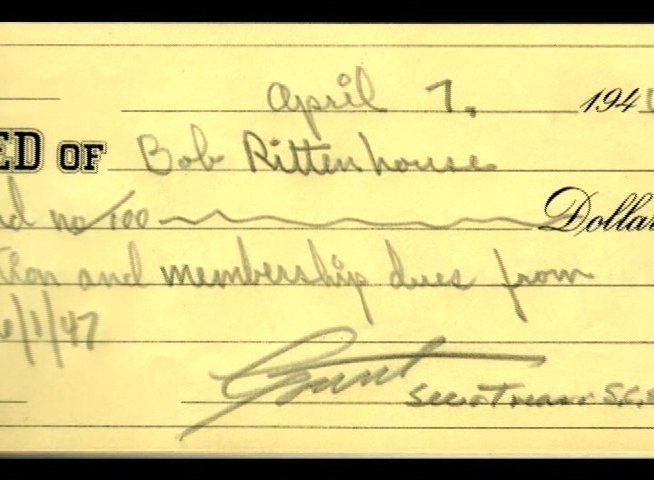 April 7. 194
ED OF Bob Rittenhouse
d no/100 Dollar
tion and membership dues from
6/1/47
Sec. + Treas. S.C.